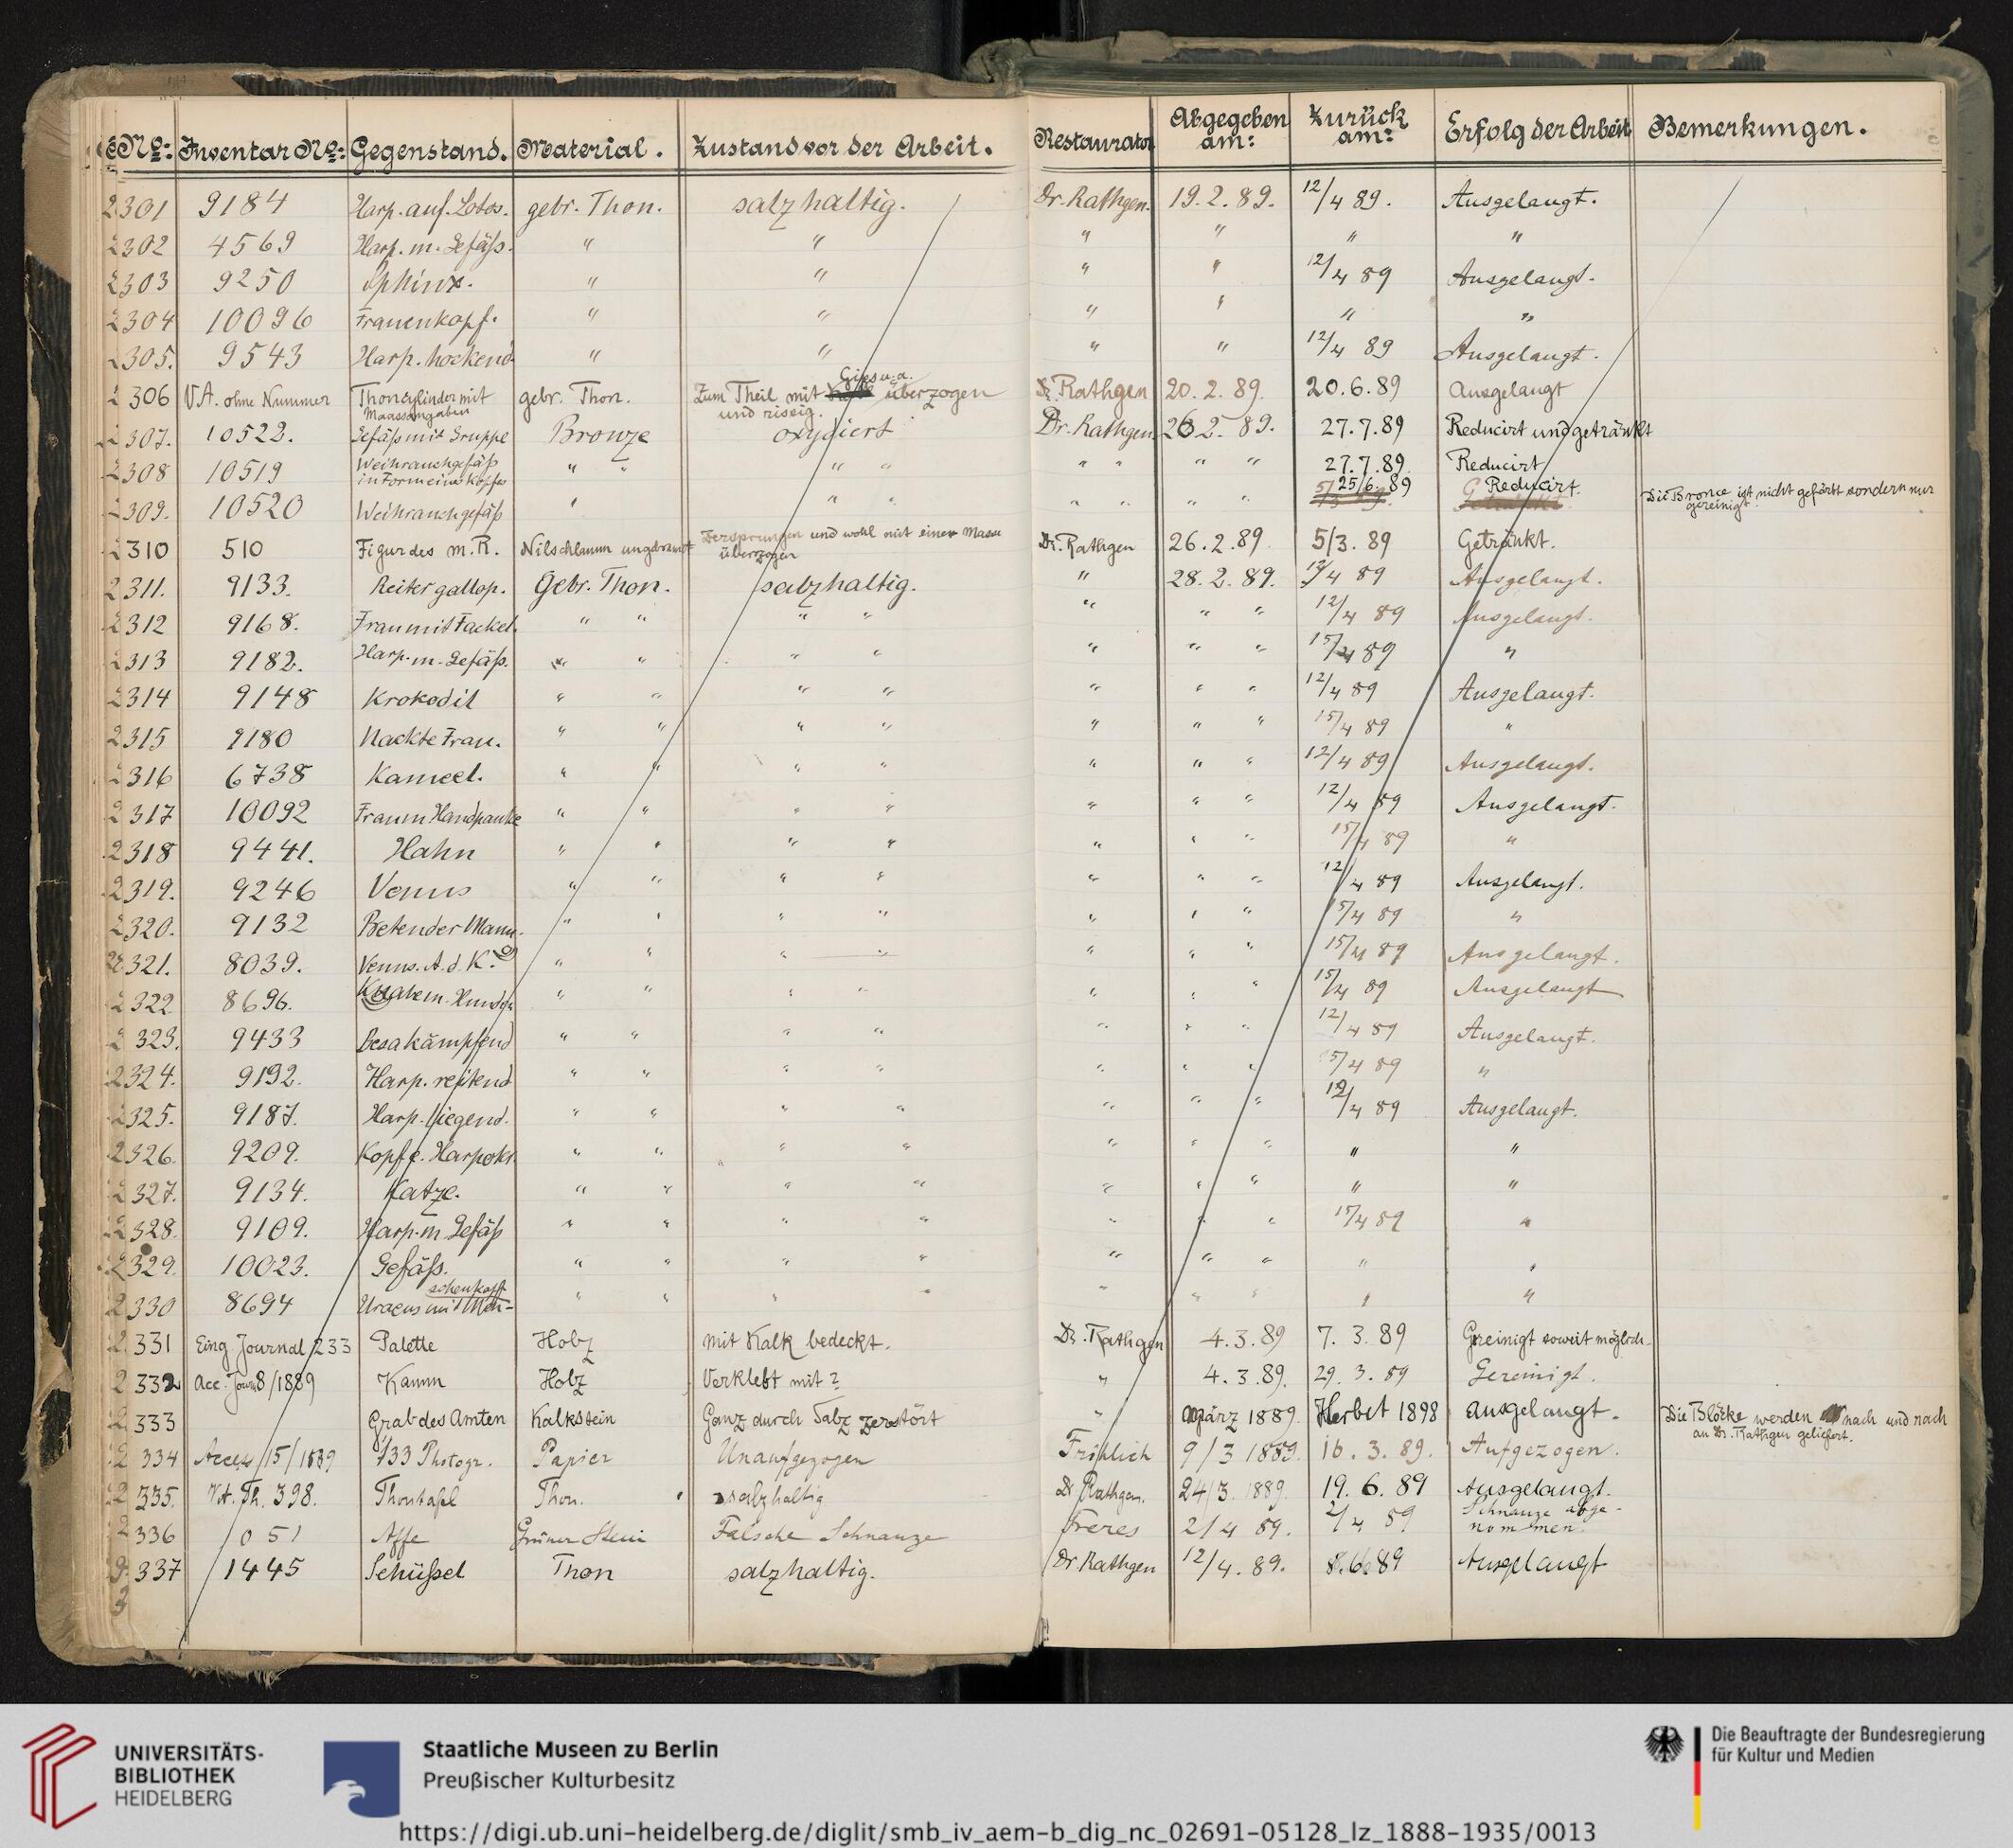 No: Inventar No: Gegenstand. Material. Zustand vor der Arbeit. Restaurator Abgegeben am: Zurück am: Erfolg der Arbeit Bemerkungen.
2301 9184 Harp. auf. Lotos. gebr. Thon. salzhaltig. Dr. Rathgen. 19.2.89. 12/4 89. Ausgelaugt.
2302 4569 Harp. m. Gefäß. " " " " " "
2303 9250 Sphinx. " " " " 12/4 89 Ausgelaugt.
2304 10096 Frauenkopf. " " " " " "
2305. 9543 Harp. hockend " " " " 12/4 89 Ausgelaugt.
2306 V.A. ohne Nummer Thoncylinder mit Maassangaben gebr. Thon. Zum Theil mit Gips u.a. überzogen und rissig. Dr. Rathgen 20.2.89. 20.6.89 Ausgelaugt
2307. 10522. Gefäß mit Gruppe Bronze oxydiert Dr. Rathgen 26.2.89. 27.7.89 Reducirt und getränkt
2308 10519 Weihrauchgefäß in Form eines Kopfes " " " " " " " " 27.7.89 Reducirt
2309. 10520 Weihrauchgefäß " " " " " " " 25/6.89 Reducirt. Die Bronce ist nicht gefärbt sondern nur gereinigt.
2310 510 Figur des m. R. Nilschlamm ungebrannt Zersprungen und wohl mit einer Masse überzogen Dr. Rathgen 26.2.89. 5/3.89 Getränkt.
2311. 9133. Reiter gallop. Gebr. Thon. salzhaltig. " 28.2.89. 12/4 89 Ausgelaugt.
2312 9168. Frau mit Fackel. " " " " " " " 12/4 89 Ausgelaugt.
2313 9182. Harp. m. Gefäß. " " " " " " " 15/4 89 "
2314 9148 Krokodil " " " " " " " 12/4 89 Ausgelaugt.
2315 9180 Nackte Frau. " " " " " " " 15/4 89 "
2316 6738 Kameel. " " " " " " " 12/4 89 Ausgelaugt.
2317 10092 Frau m Handpauke " " " " " " " 12/4 89 Ausgelaugt.
2318 9441. Hahn " " " " " " " 15/4 89 "
2319. 9246 Venus " " " " " " " 12/4 89 Ausgelaugt.
2320. 9132 Betender Mann. " " " " " " " 15/4 89 "
2321. 8039. Venus. A. d. K. " " " " " " " 15/4 89 Ausgelaugt.
2322 8696. Knabe m. Hund " " " " " " " 15/4 89 Ausgelaugt
2323. 9433 Besa kämpfend " " " " " " " 12/4 89 Ausgelaugt.
2324. 9192. Harp. reitend " " " " " " " 15/4 89 "
2325. 9187. Harp. liegend. " " " " " " " 12/4 89 Ausgelaugt.
2326. 9209. Kopf e. Harpokr. " " " " " " " " "
2327. 9134. Katze. " " " " " " " " "
2328. 9109. Harp. m Gefäß " " " " " " " 15/4 89 "
2329. 10023. Gefäß. " " " " " " " " "
2330 8694 Uraeus mit Menschenkopf " " " " " " " " "
2331 Eing Journal 233 Palette Holz mit Kalk bedeckt. Dr. Rathgen 4.3.89 7.3.89 Gereinigt soweit möglich.
2332 Acc. Journ 8/1889 Kamm Holz Verklebt mit? " 4.3.89. 29.3.89 Gereinigt.
2333 Grab des Amten Kalkstein Ganz durch Salz zerstört " März 1889. Herbst 1898 ausgelaugt. Die Blöcke werden nach und nach an Dr. Rathgen geliefert.
2334 Access/15/1889 133 Photogr. Papier Unaufgezogen Fröhlich 9/3 1889. 16.3.89. Aufgezogen.
2335. V.A. Th. 398. Thontafel Thon. salzhaltig Dr Rathgen. 24/3.1889. 19.6.89 Ausgelaugt.
2336 1051 Affe Grüner Stein Falsche Schnauze Freres 2/4 89. 2/4 89 Schnauze abgenommen.
2337 1445 Schüßel Thon salzhaltig. Dr Rathgen 12/4.89. 8.6.89 Ausgelaugt
UNIVERSITÄTS-
BIBLIOTHEK
HEIDELBERG
Staatliche Museen zu Berlin
Preußischer Kulturbesitz
Die Beauftragte der Bundesregierung
für Kultur und Medien
https://digi.ub.uni-heidelberg.de/diglit/smb_iv_aem-b_dig_nc_02691-05128_lz_1888-1935/0013